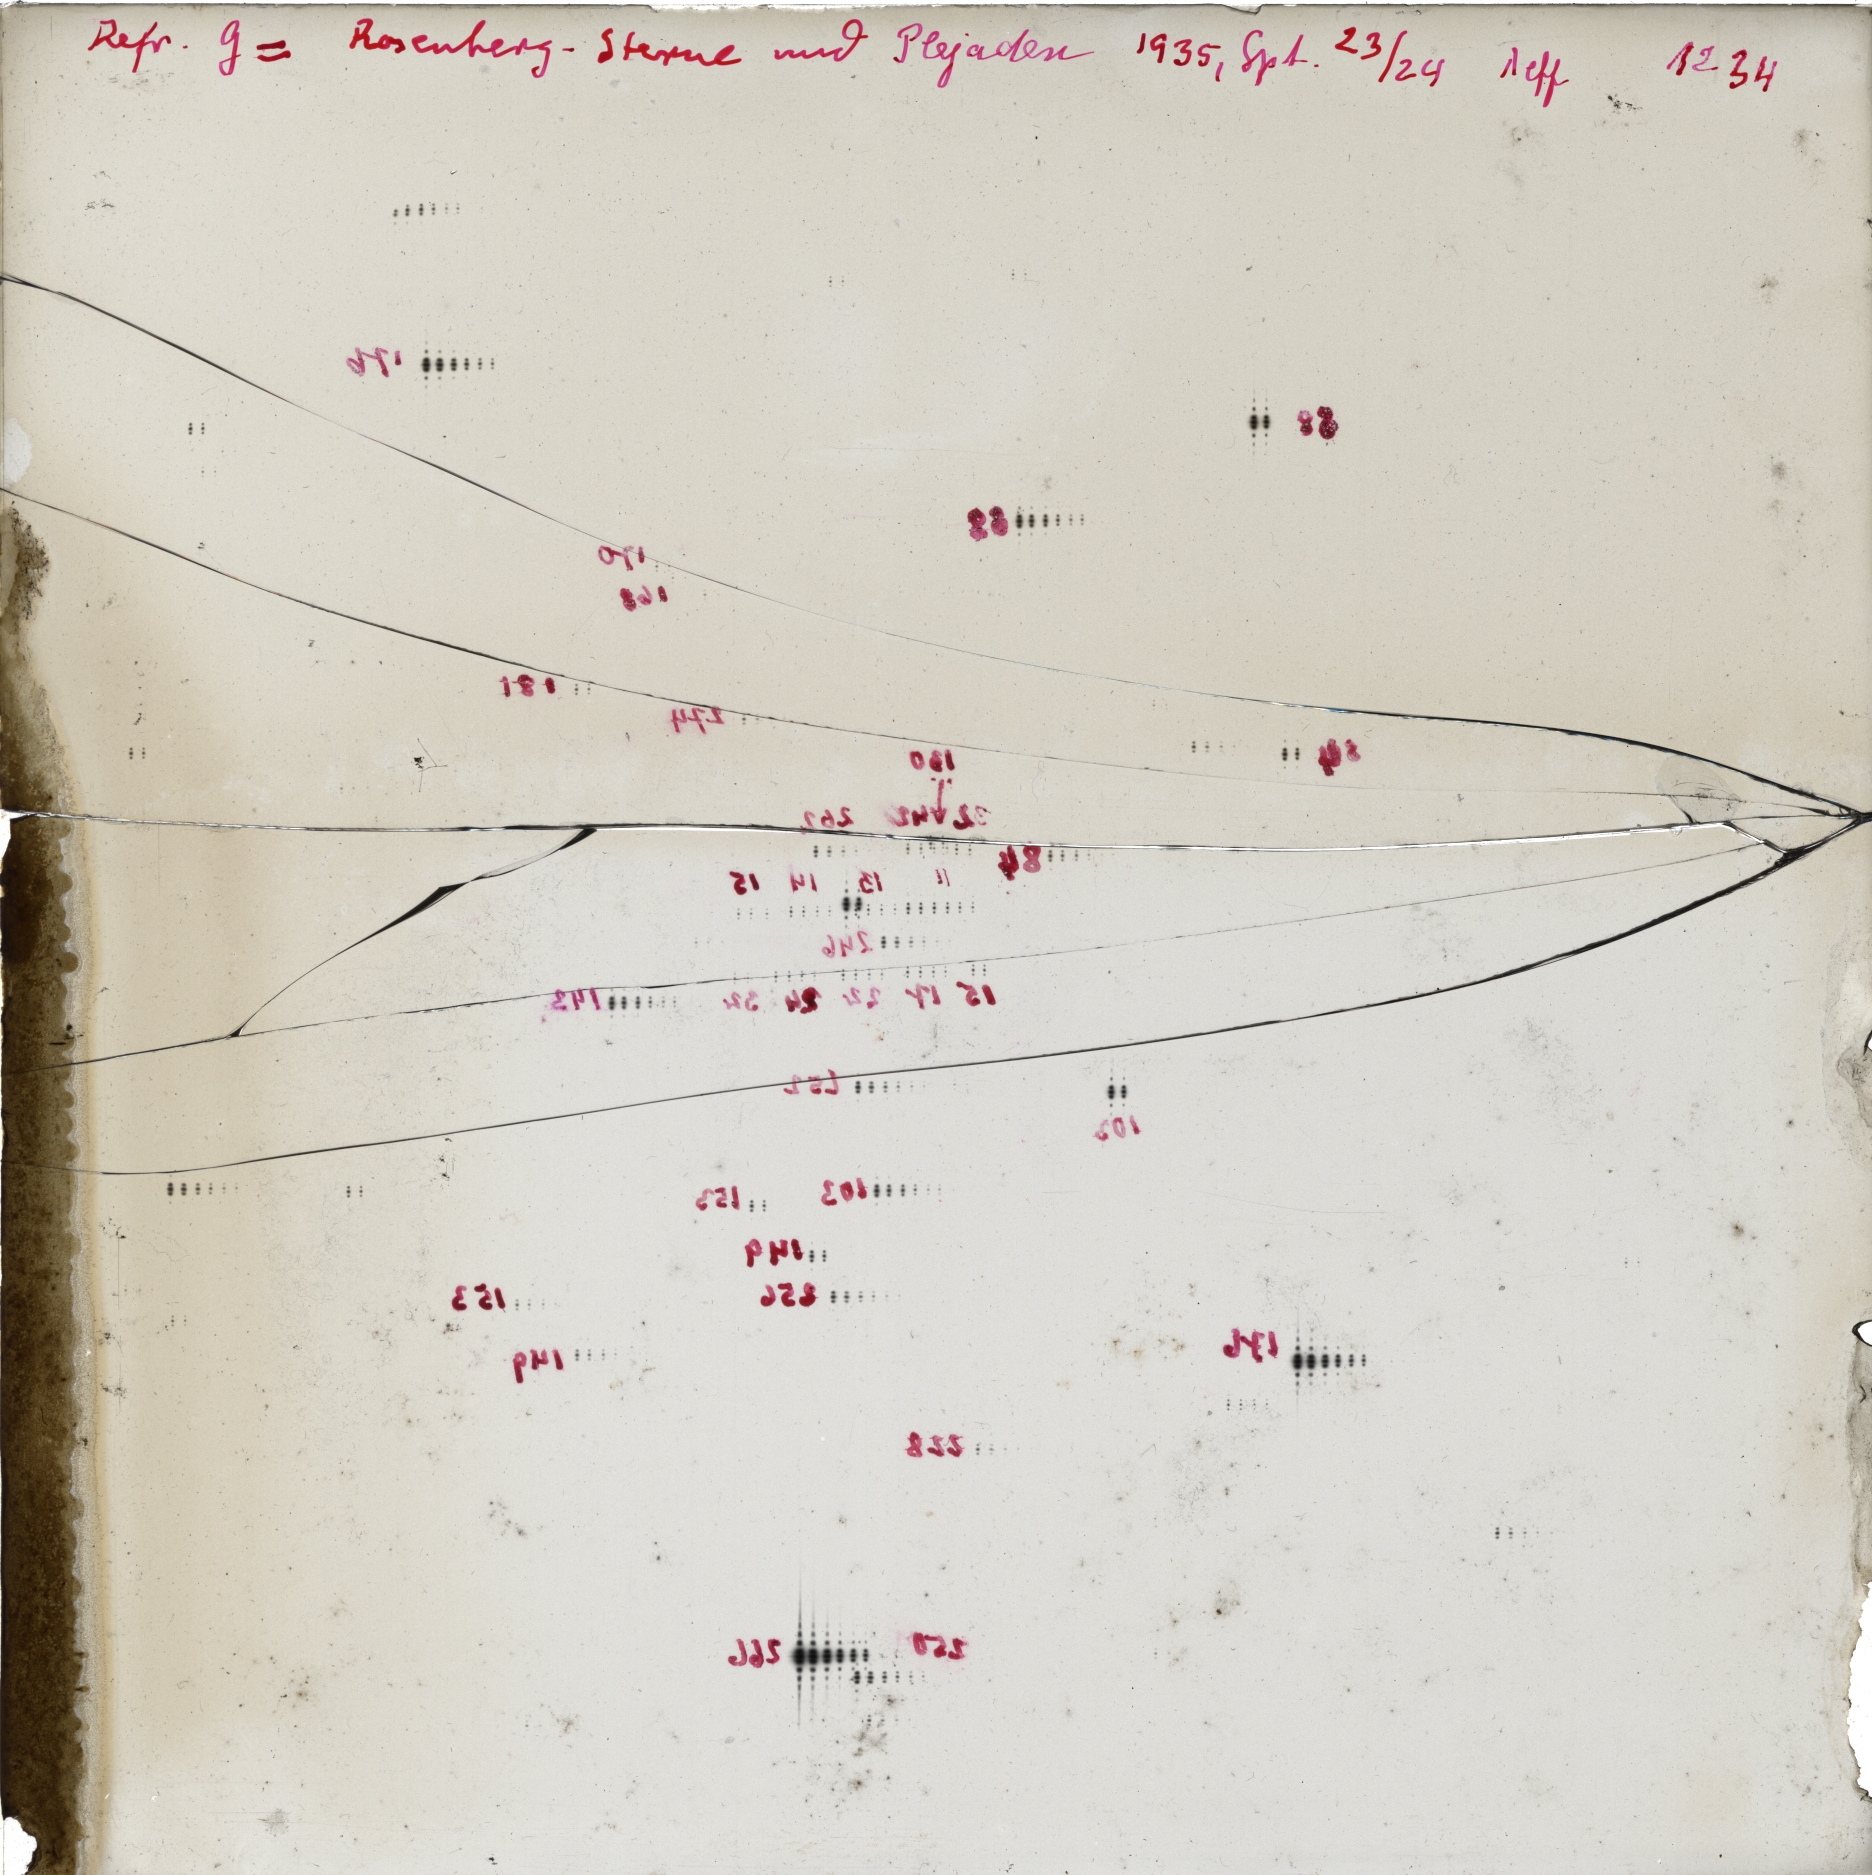 Refr. g = Rosenberg-Sterne und Plejaden 1935, Spt. 23/24 λeff 1234
176
88
88
170
168
181
274
130
84
262 42 32
84
15 14 13 11
246
143 32 24 22 17 15
252
102
153 103
149
153 256
176
149
228
266 250